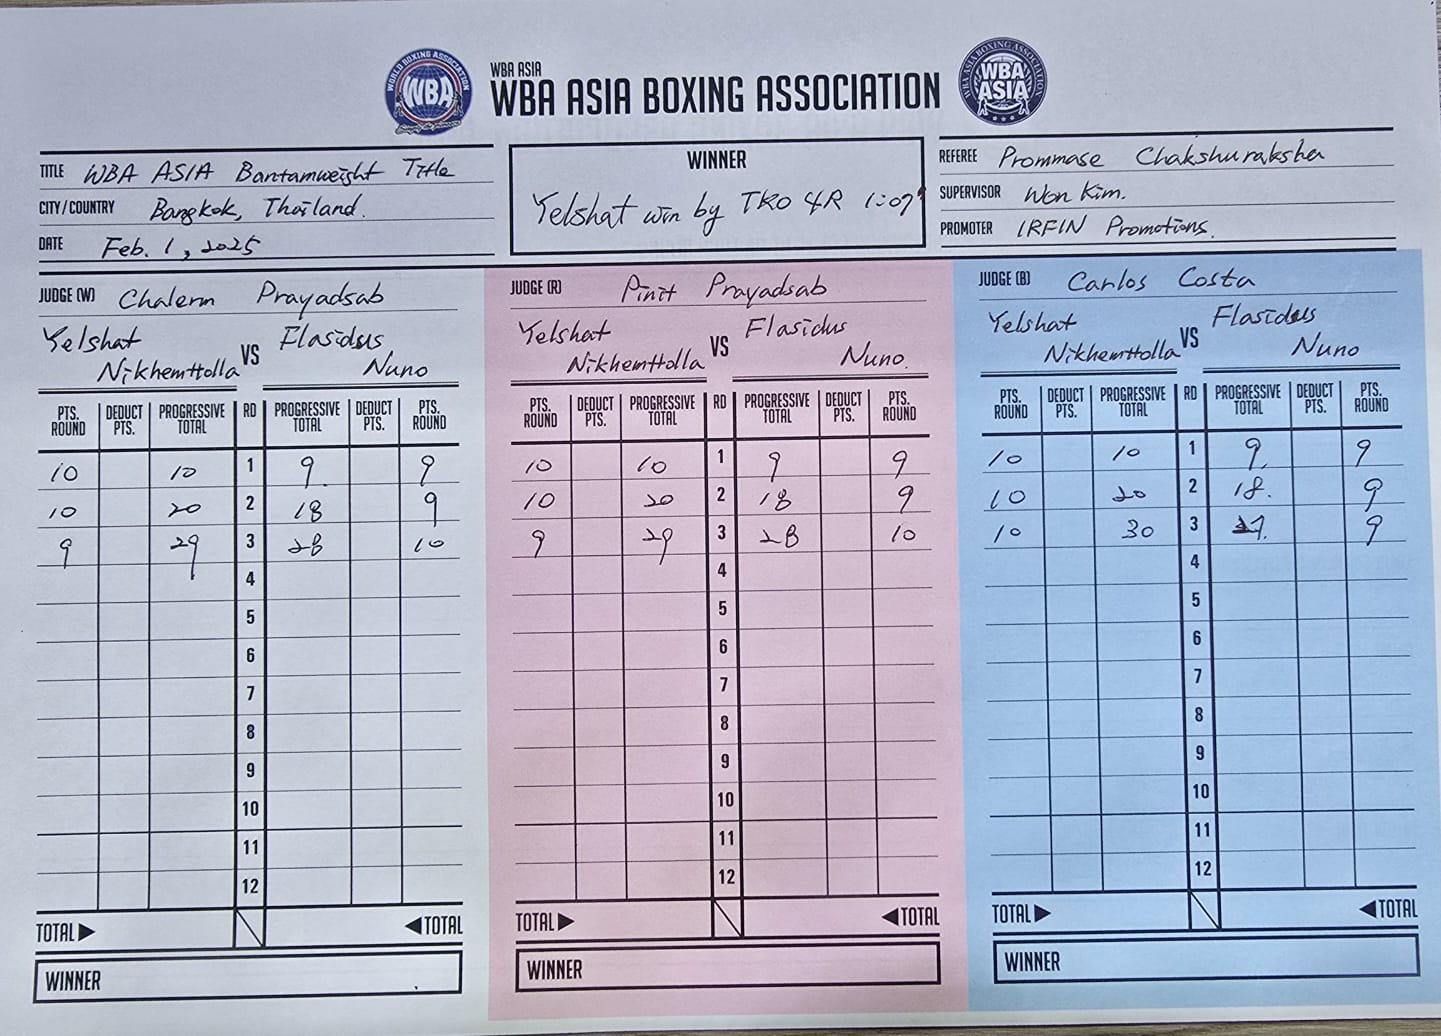 WORLD BOXING ASSOCIATION
WBA
WBA ASIA
WBA ASIA BOXING ASSOCIATION
WBA ASIA BOXING ASSOCIATION
WBA
ASIA
TITLE WBA ASIA Bantamweight Title
CITY/COUNTRY Bangkok, Thailand.
DATE Feb. 1, 2025
WINNER
Yelshat win by TKO 4R 1:07"
REFEREE Prommase Chakshuraksha
SUPERVISOR Won Kim.
PROMOTER IRFIN Promotions.
JUDGE (W) Chalerm Prayadsab
Yelshat Nikhemttolla VS Flasidus Nuno
PTS. ROUND DEDUCT PTS. PROGRESSIVE TOTAL RD PROGRESSIVE TOTAL DEDUCT PTS. PTS. ROUND
10 10 1 9. 9
10 20 2 18 9
9 29 3 28 10
4
5
6
7
8
9
10
11
12
TOTAL TOTAL
WINNER
JUDGE (R) Pinit Prayadsab
Yelshat Nikhemttolla VS Flasidus Nuno.
PTS. ROUND DEDUCT PTS. PROGRESSIVE TOTAL RD PROGRESSIVE TOTAL DEDUCT PTS. PTS. ROUND
10 10 1 9 9
10 20 2 18 9
9 29 3 28 10
4
5
6
7
8
9
10
11
12
TOTAL TOTAL
WINNER
JUDGE (B) Carlos Costa
Yelshat Nikhemttolla VS Flasidus Nuno
PTS. ROUND DEDUCT PTS. PROGRESSIVE TOTAL RD PROGRESSIVE TOTAL DEDUCT PTS. PTS. ROUND
10 10 1 9. 9
10 20 2 18. 9
10 30 3 27. 9
4
5
6
7
8
9
10
11
12
TOTAL TOTAL
WINNER